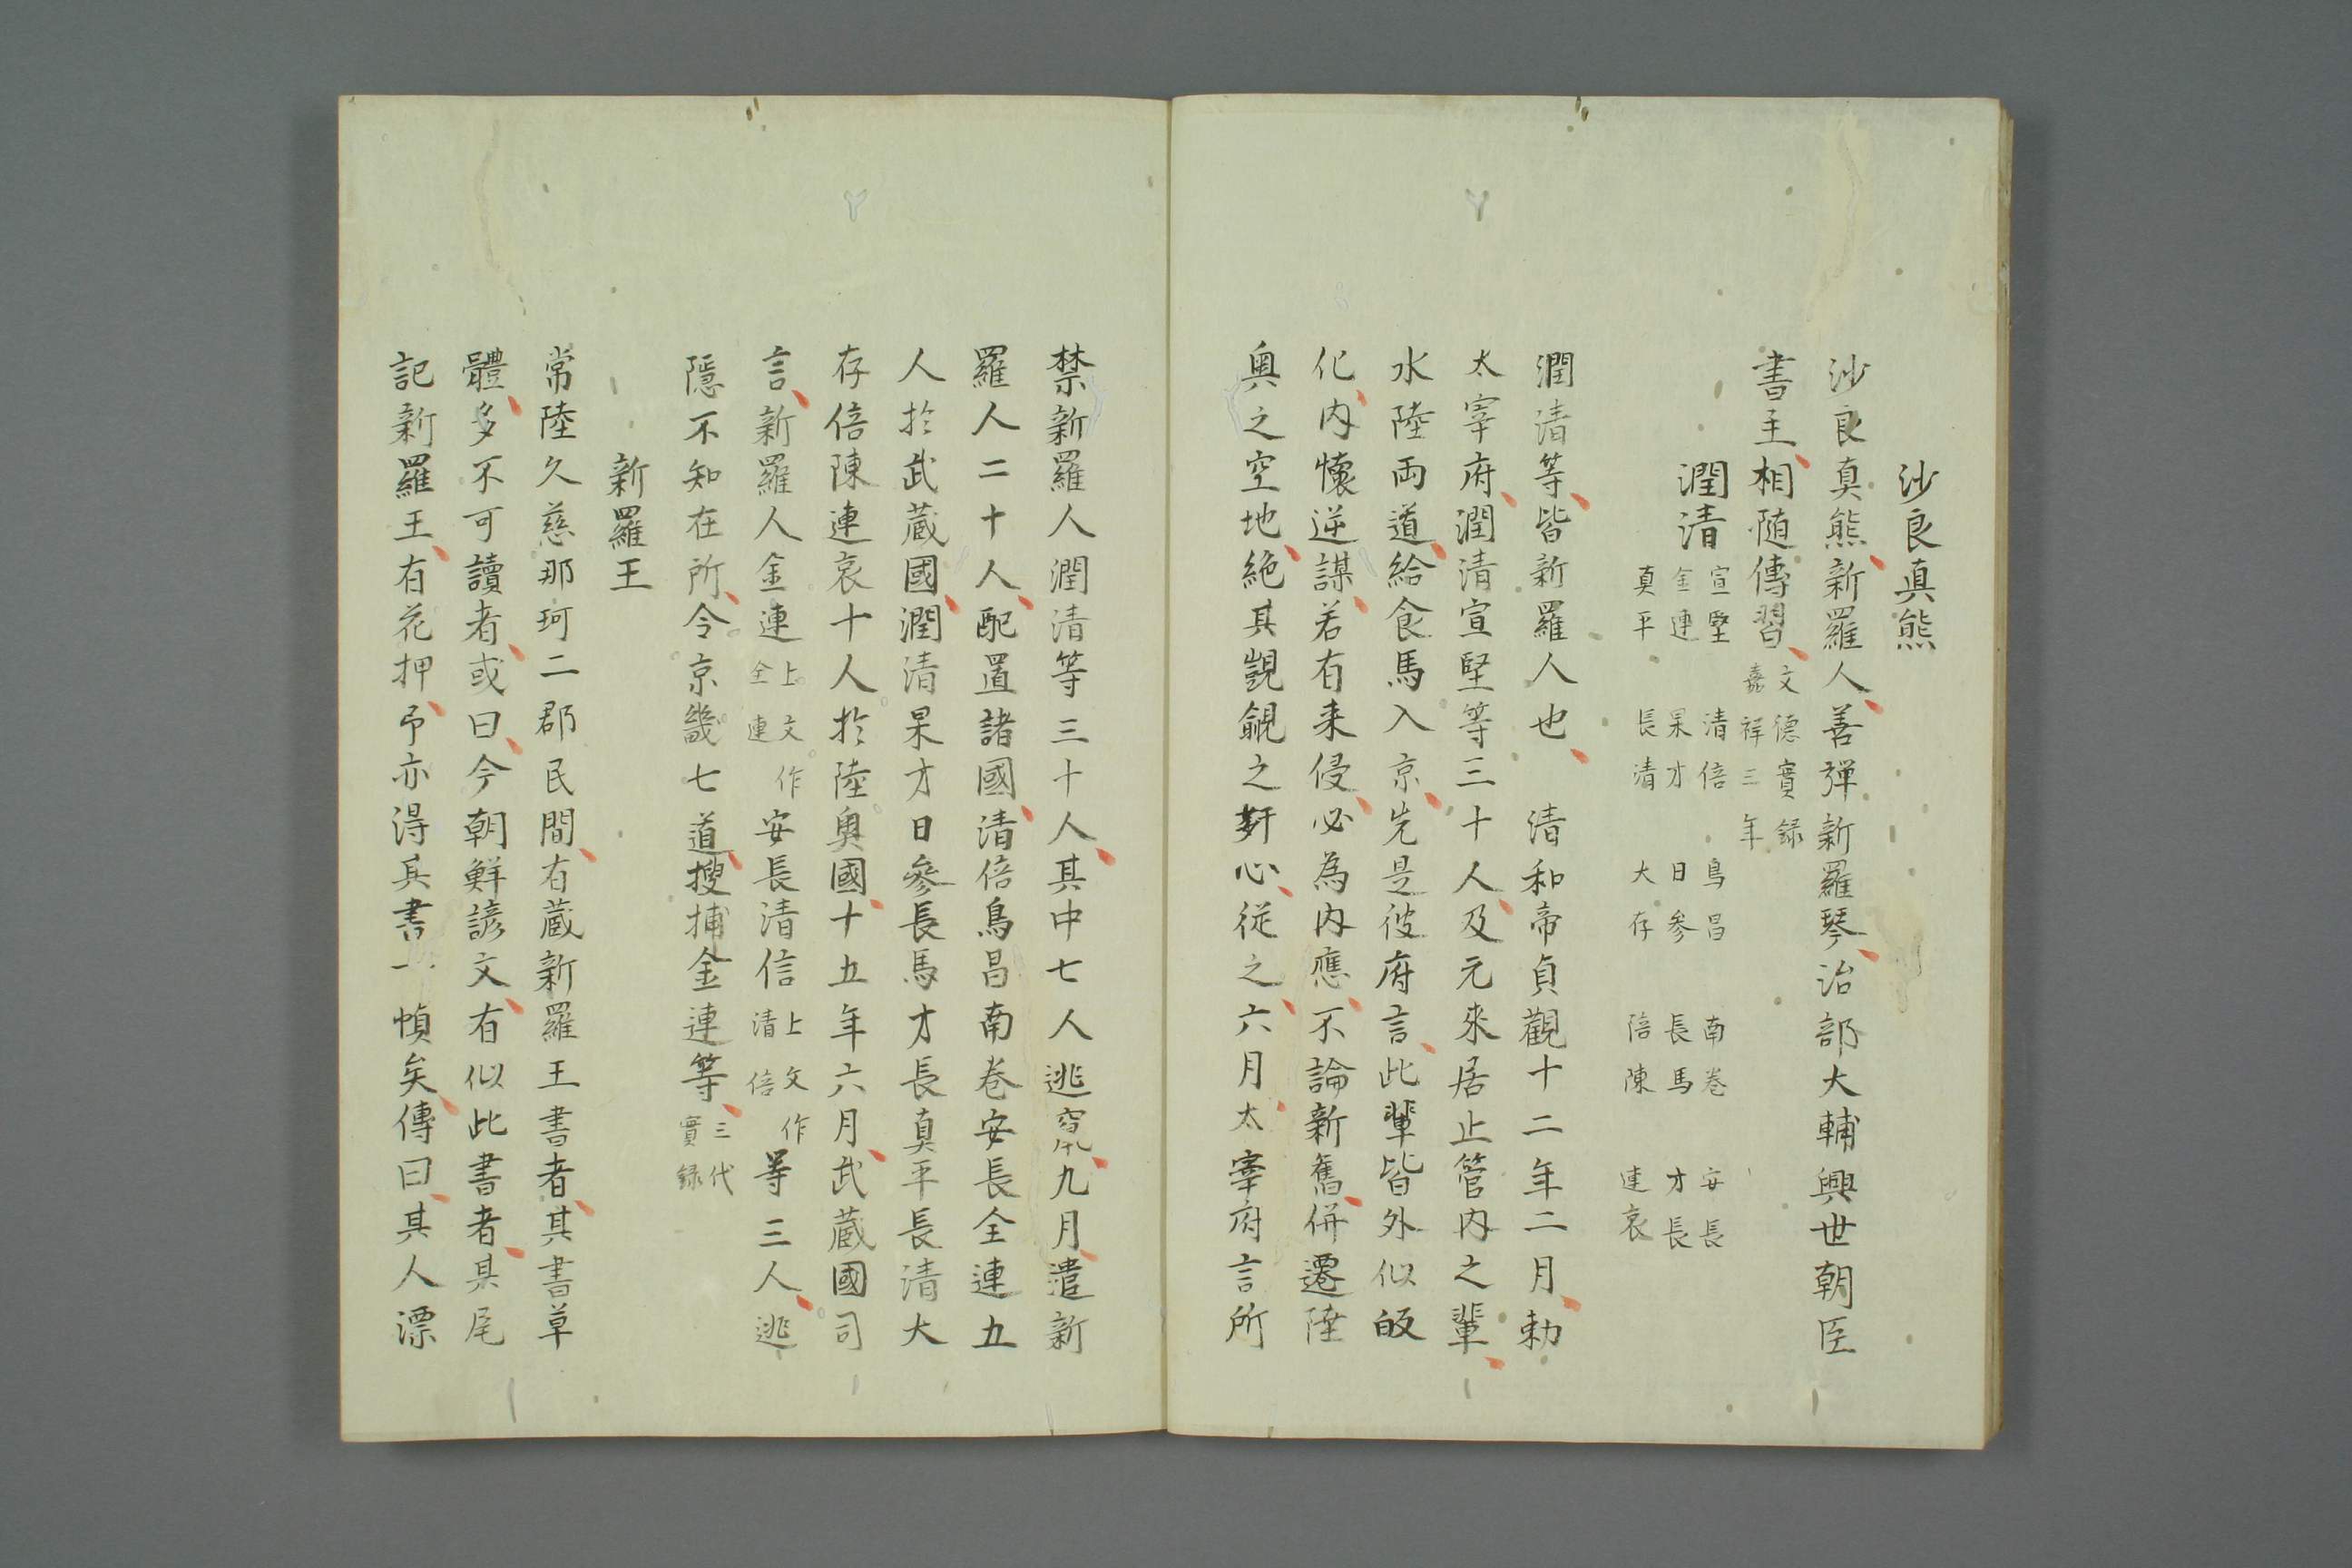 沙良真熊
沙良真熊新羅人善弾新羅琴治部大輔興世朝臣
書主相随傳習文德實録嘉祥三年
潤清宣堅 清倍 鳥昌 南巻 安長
金連 杲才 日参 長馬 才長
真平 長清 大存 陪陳 連哀
潤清等皆新羅人也 清和帝貞觀十二年二月勅
太宰府潤清宣堅等三十人及元來居止管内之輩
水陸両道給食馬入京先是彼府言此輩皆外似皈
化内懐逆謀若有来侵必為内應不論新舊併遷陸
奥之空地絶其覬覦之奸心従之六月太宰府言所
禁新羅人潤清等三十人其中七人逃竄九月遣新
羅人二十人配置諸國清倍鳥昌南巻安長全連五
人於武蔵國潤清杲才日参長馬才長真平長清大
存倍陳連哀十人於陸奥國十五年六月武蔵國司
言新羅人金連上文作全連安長清信上文作清倍等三人逃
隠不知在所令京畿七道搜捕金連等三代實録
新羅王
常陸久慈那珂二郡民間有蔵新羅王書者其書草
體多不可讀者或曰今朝鮮諺文有似此書者其尾
記新羅王有花押予亦得其書一幀矣傳曰其人漂